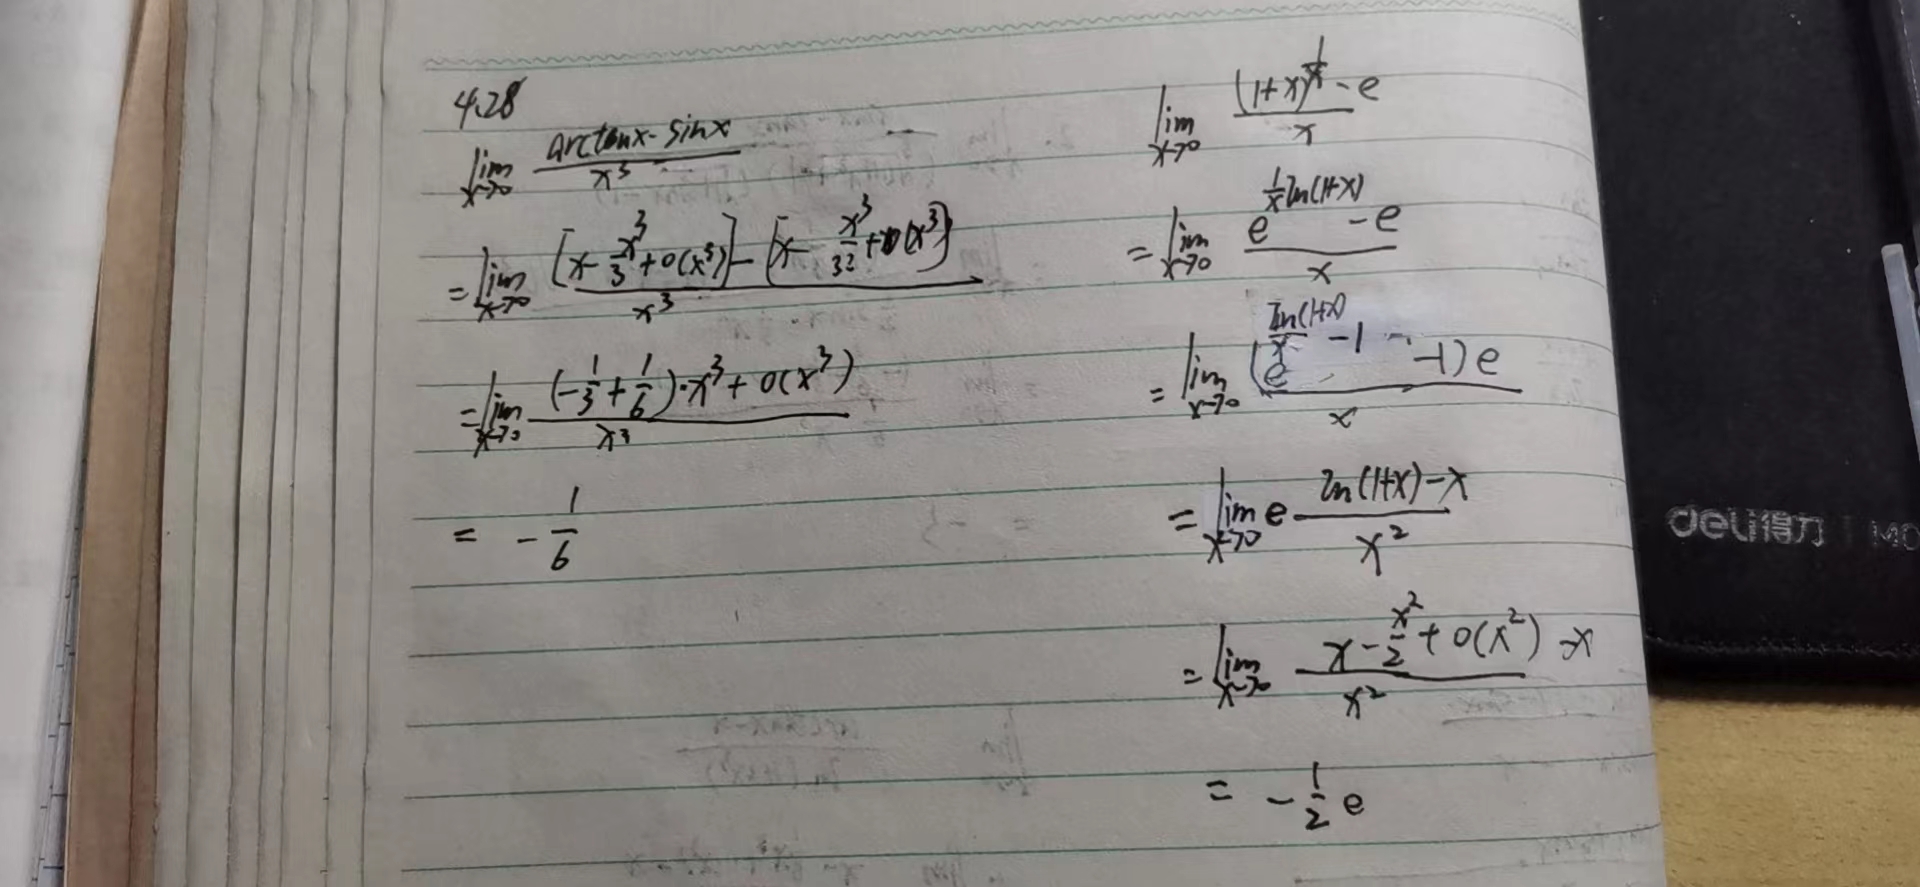 4.28
lim x→0 (arctanx - sinx)/x³
= lim x→0 ([x - x³/3 + o(x³)] - [x - x³/3! + o(x³)])/x³
= lim x→0 ((-1/3 + 1/6)·x³ + o(x³))/x³
= -1/6
lim x→0 ((1+x)^(1/x) - e)/x
= lim x→0 (e^(1/x ln(1+x)) - e)/x
= lim x→0 (e^(ln(1+x)/x - 1) - 1)e/x
= lim x→0 e (ln(1+x) - x)/x²
= lim x→0 (x - x²/2 + o(x²) - x)/x²
= -1/2 e
deli得力